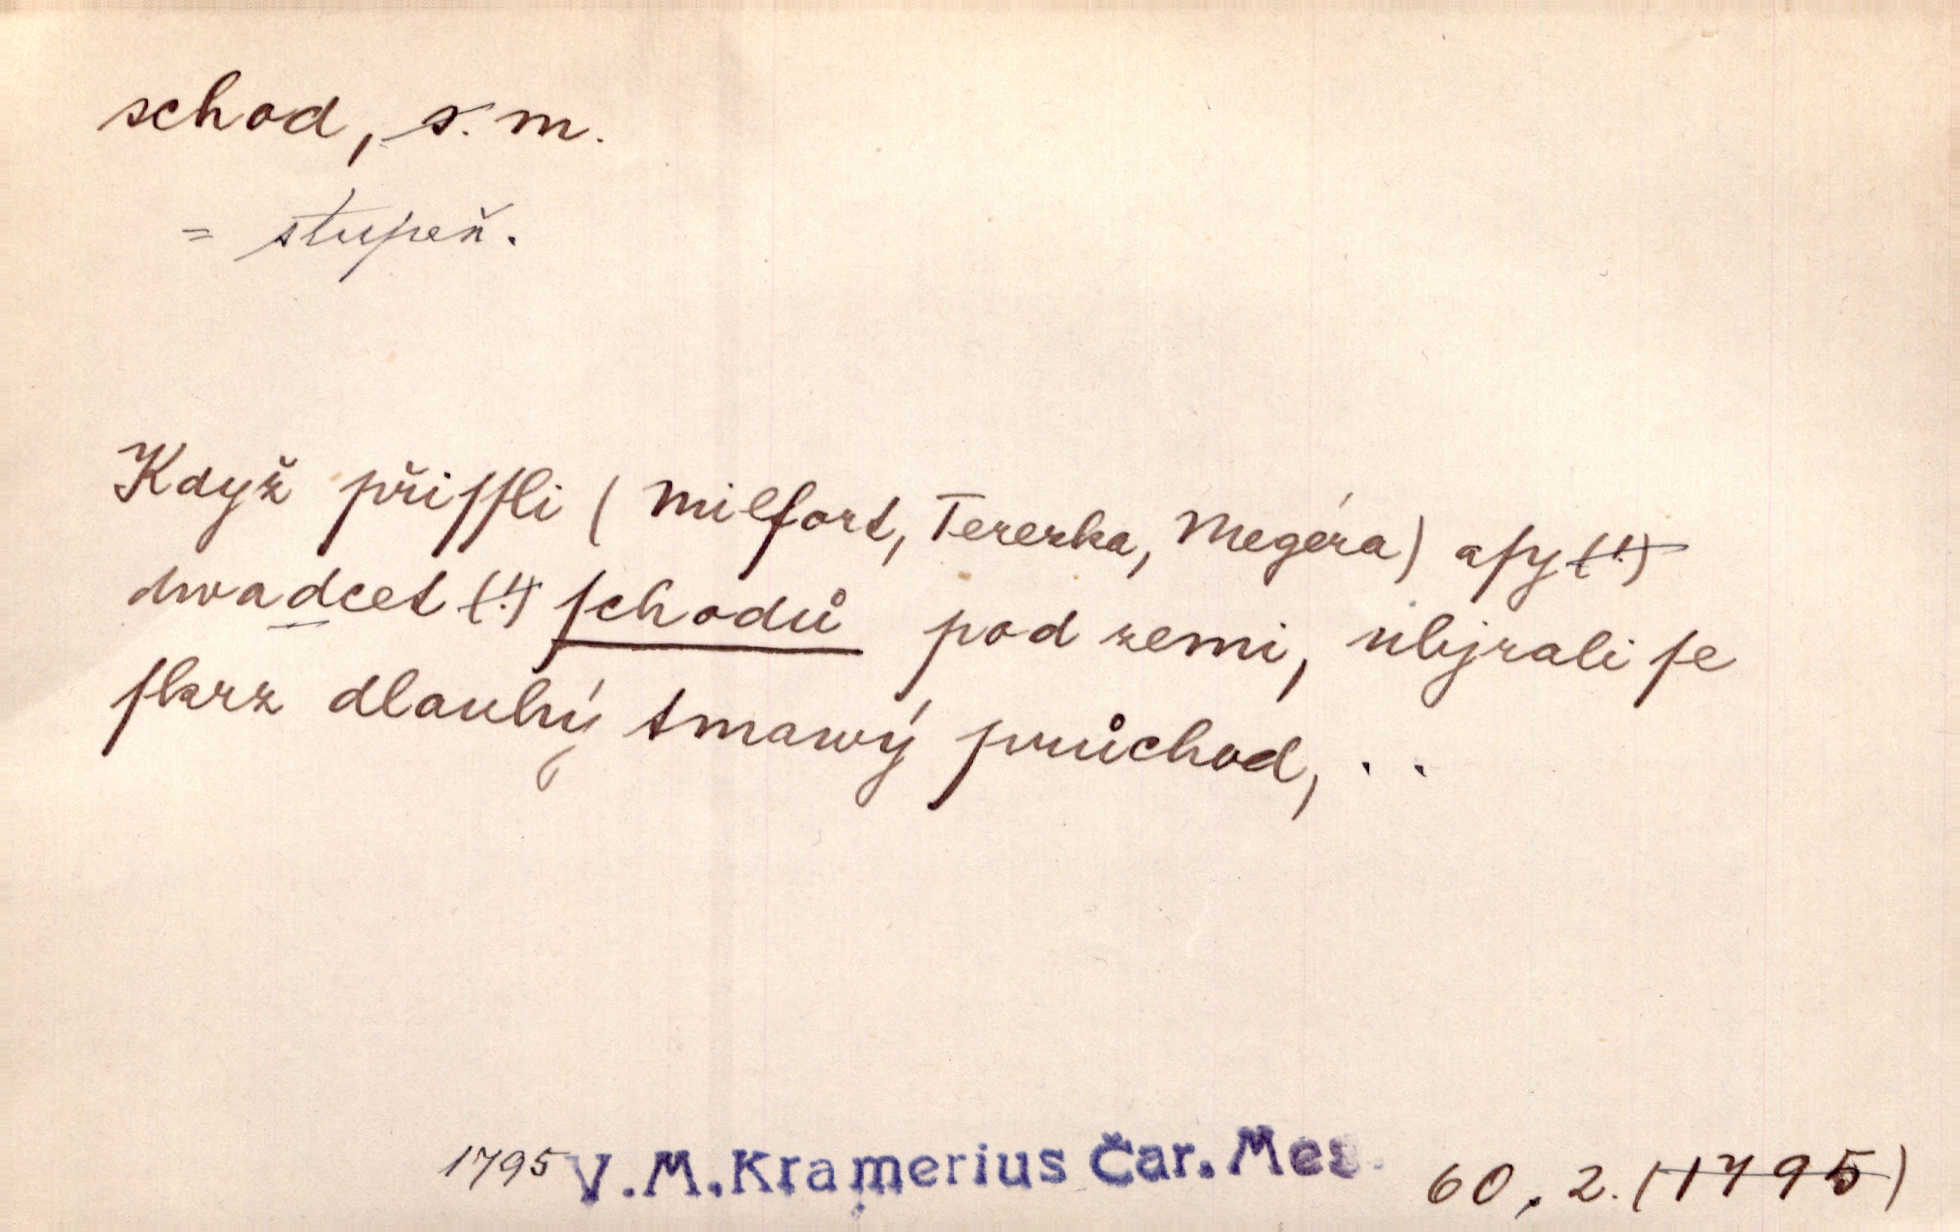 schod, s. m.
= stupeň.
Když přiſſli (Milfort, Terezka, Megéra) aſy (!)
dwadcet (!) ſchodů pod zemi, ubjrali ſe
ſkrz dlauhý tmawý průchod, . .
1795 V.M.Kramerius Čar. Mes. 60, 2. (1795)